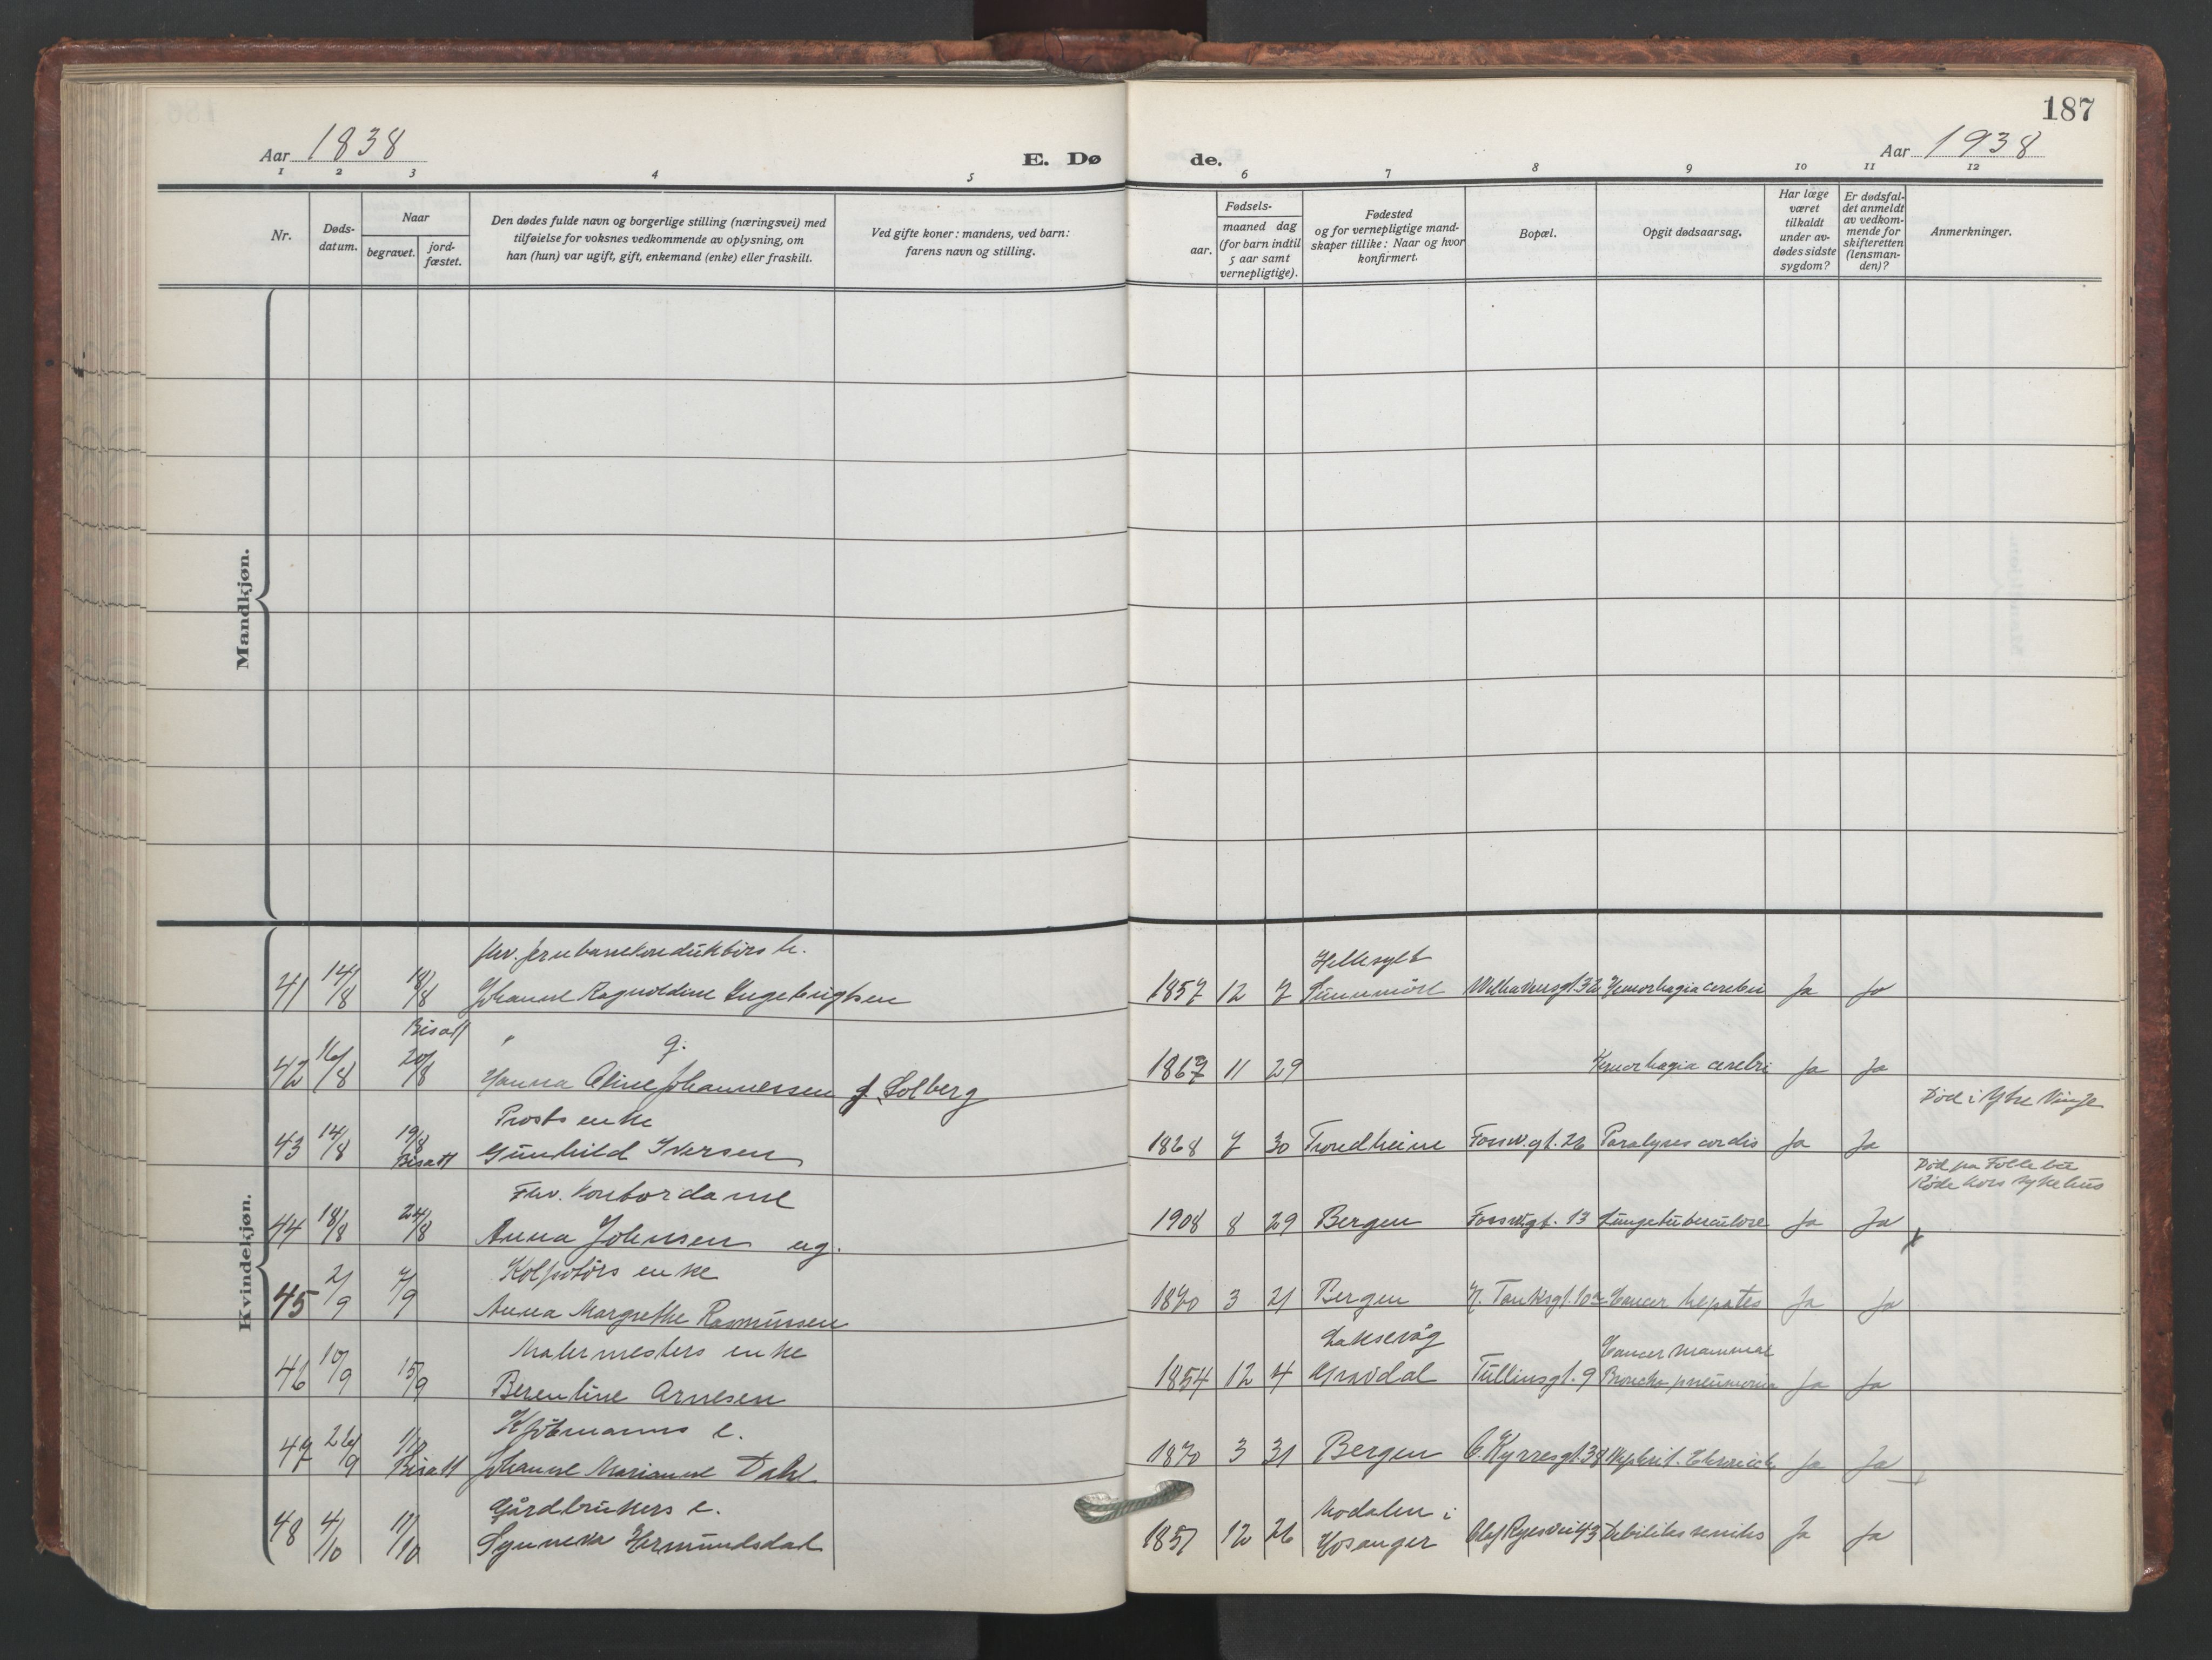 187
Aar 1838
E. Dø
de.
Aar 1938
1 2 3 4 5 6 7 8 9 10 11 12
Nr.
Døds-
datum.
Naar
begravet.
jord-
fæstet.
Den dødes fulde navn og borgerlige stilling (næringsvei) med
tilføielse for voksnes vedkommende av oplysning, om
han (hun) var ugift, gift, enkemand (enke) eller fraskilt.
Ved gifte koner: mandens, ved barn:
farens navn og stilling.
Fødsels-
aar.
maaned dag
(for barn indtil
5 aar samt
vernepligtige).
Fødested
og for vernepligtige mand-
skaper tillike: Naar og hvor
konfirmert.
Bopæl.
Opgit dødsaarsag.
Har læge
været
tilkaldt
under av-
dødes sidste
sygdom?
Er dødsfal-
det anmeldt
av vedkom-
mende for
skifteretten
(lensman-
den)?
Anmerkninger.
Mandkjøn.
Kvindekjøn.
fhv. jernbanekonduktørs h.
Hellesylt
41 14/8 18/8 Johanne Ragnoldine Ingebrigtsen 1857 12 7 Sunnmöre Welhavensgt. 32 Hemorhagia cerebri Ja Ja
Bisatt " g.
42 16/8 20/8 Hanna Oline Johannessen f. Solberg 1867 11 29 Hemorhagia cerebri Ja Ja
Prosts enke
Död i Ytre Vinje
43 14/8 19/8 Bisatt Gunhild Iversen 1868 7 30 Trondheim Fossw.gt. 26 Paralyses cordis Ja Ja
Fhv. Kontordame
Död på Follebu
Röde Kors sykehus
44 18/8 24/8 Anna Johnsen ug. 1908 8 29 Bergen Fosswgt. 13 Lungetuberculose Ja Ja x
Kolpotörs enke
45 2/9 7/9 Anna Margrethe Rasmussen 1870 3 21 Bergen N. Tanksgt. 10a Cancer hepates Ja Ja
Malermesters enke
Laksevåg
Cancer mammae
46 10/9 15/9 Berentine Arnesen 1854 12 4 Gravdal Tullinsgt. 9 Broncho pneumonia Ja Ja
Kjöbmanns e.
47 26/9 1/10 Bisatt Johanne Marianne Dahl 1870 3 31 Bergen O. Kyrresgt. 38 Nephrit. Chronica Ja Ja
Gårdbrukers e.
Modalen i
48 4/10 11/10 Synneva Hermundsdal 1857 12 26 Hosanger Olaf Ryesvei 43 Debilites senilis Ja Ja